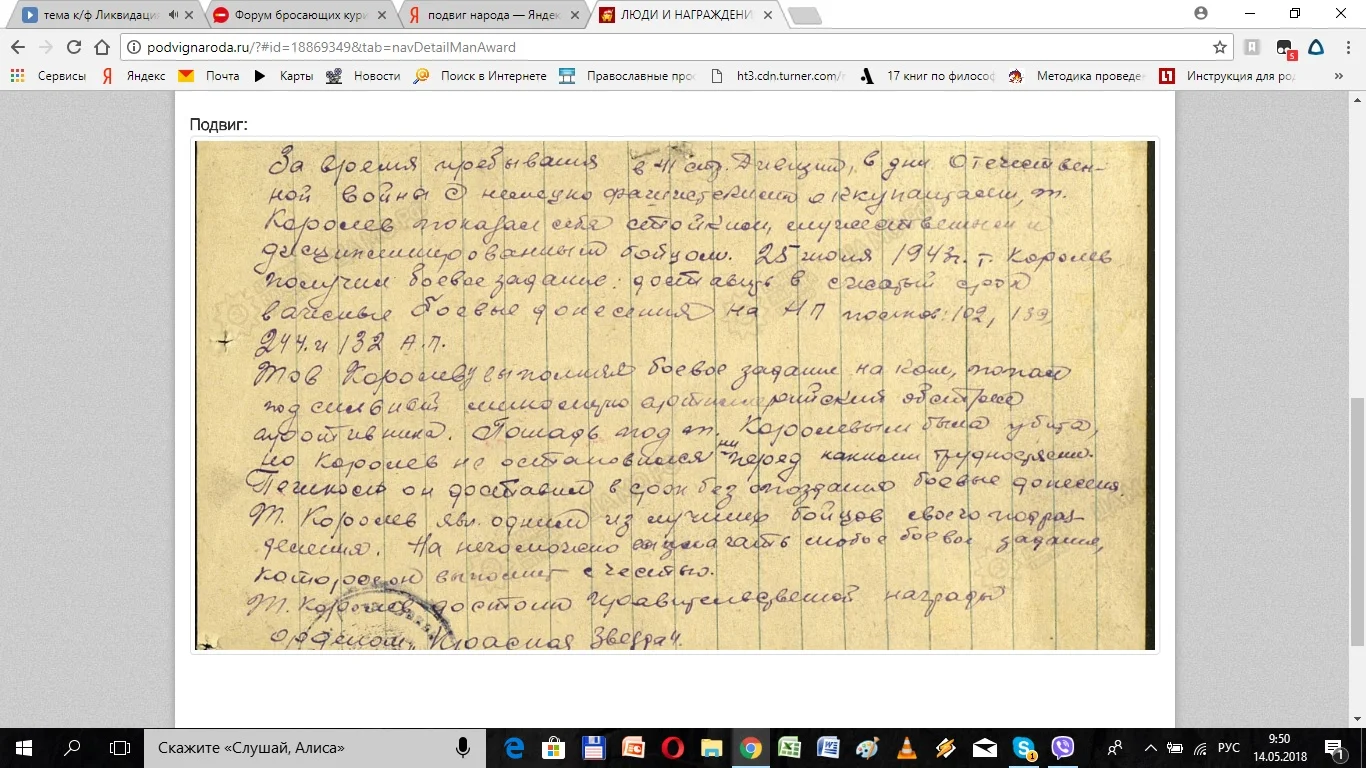 тема к/ф Ликвидаци
Форум бросающих кури
подвиг народа — Яндек
ЛЮДИ И НАГРАЖДЕНИ
podvignaroda.ru/?#id=18869349&tab=navDetailManAward
Сервисы Яндекс Почта Карты Новости Поиск в Интернете Православные прос ht3.cdn.turner.com/r 17 книг по философ Методика проведен Инструкция для род »
Подвиг:
За время пребывания в 41 стр. Дивизии, в дни Отечествен-
ной война с немецко фашистскими оккупантами, т.
Королев показал себя стойким, мужественным и
дисциплинированным бойцом. 25 июля 1943г. т. Королев
получил боевое задание: доставить в сжатый срок
важные боевые донесения на НП полков: 102, 139,
244. и 132 А.П.
Тов Королев выполняя боевое задание на коне, попал
под сильный минометно артиллерийский обстрел
противника. Лошадь под т. Королевым была убита,
но Королев не остановился ни перед какими трудностями.
Пешком он доставил в срок без опоздания боевые донесения.
Т. Королев явл. одним из лучших бойцов своего подраз-
деления. На него можно возлагать любое боевое задание,
которое он выполнит с честью.
Т. Королев достоин правительственной награды
орденом „Красная Звезда".
Скажите «Слушай, Алиса»
РУС
9:50
14.05.2018